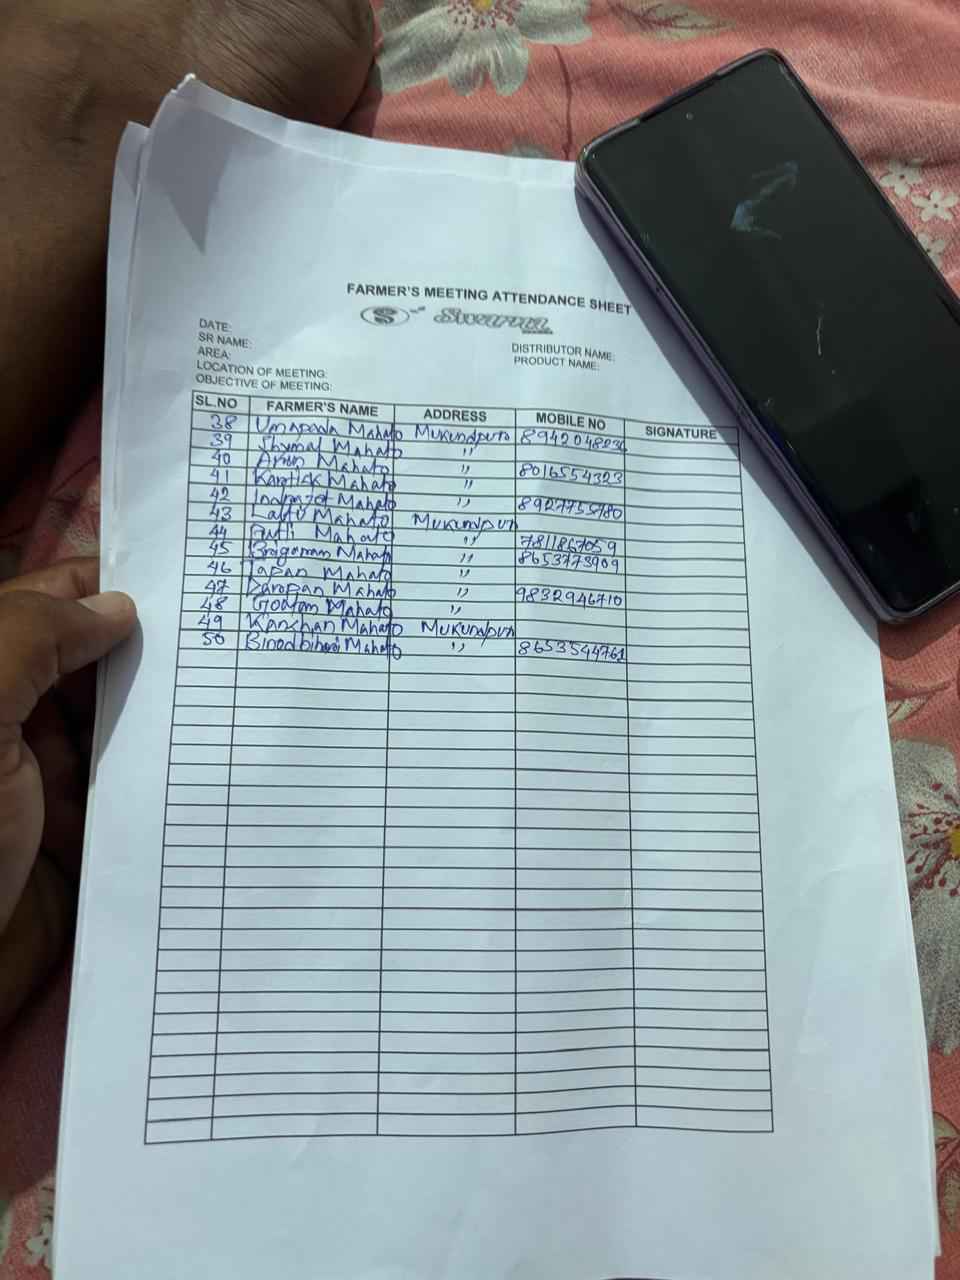 FARMER'S MEETING ATTENDANCE SHEET
S Swarna
DATE:
SR NAME: DISTRIBUTOR NAME:
AREA: PRODUCT NAME:
LOCATION OF MEETING:
OBJECTIVE OF MEETING:
SL.NO FARMER'S NAME ADDRESS MOBILE NO SIGNATURE
38 Umapada Mahato Mukundpur 8942048236
39 Shymal Mahato "
40 Arun Mahato " 8016554323
41 Kartick Mahato "
42 Indrajet Mahato " 8927755780
43 Laltu Mahato Mukundpur
44 Mahato " 7811867059
45 Mahato " 8653773909
46 Tapan Mahato "
47 Mahato " 9832946710
48 Goutom Mahato "
49 Kanchan Mahato Mukundpur
50 Binodbihari Mahato " 8653544761